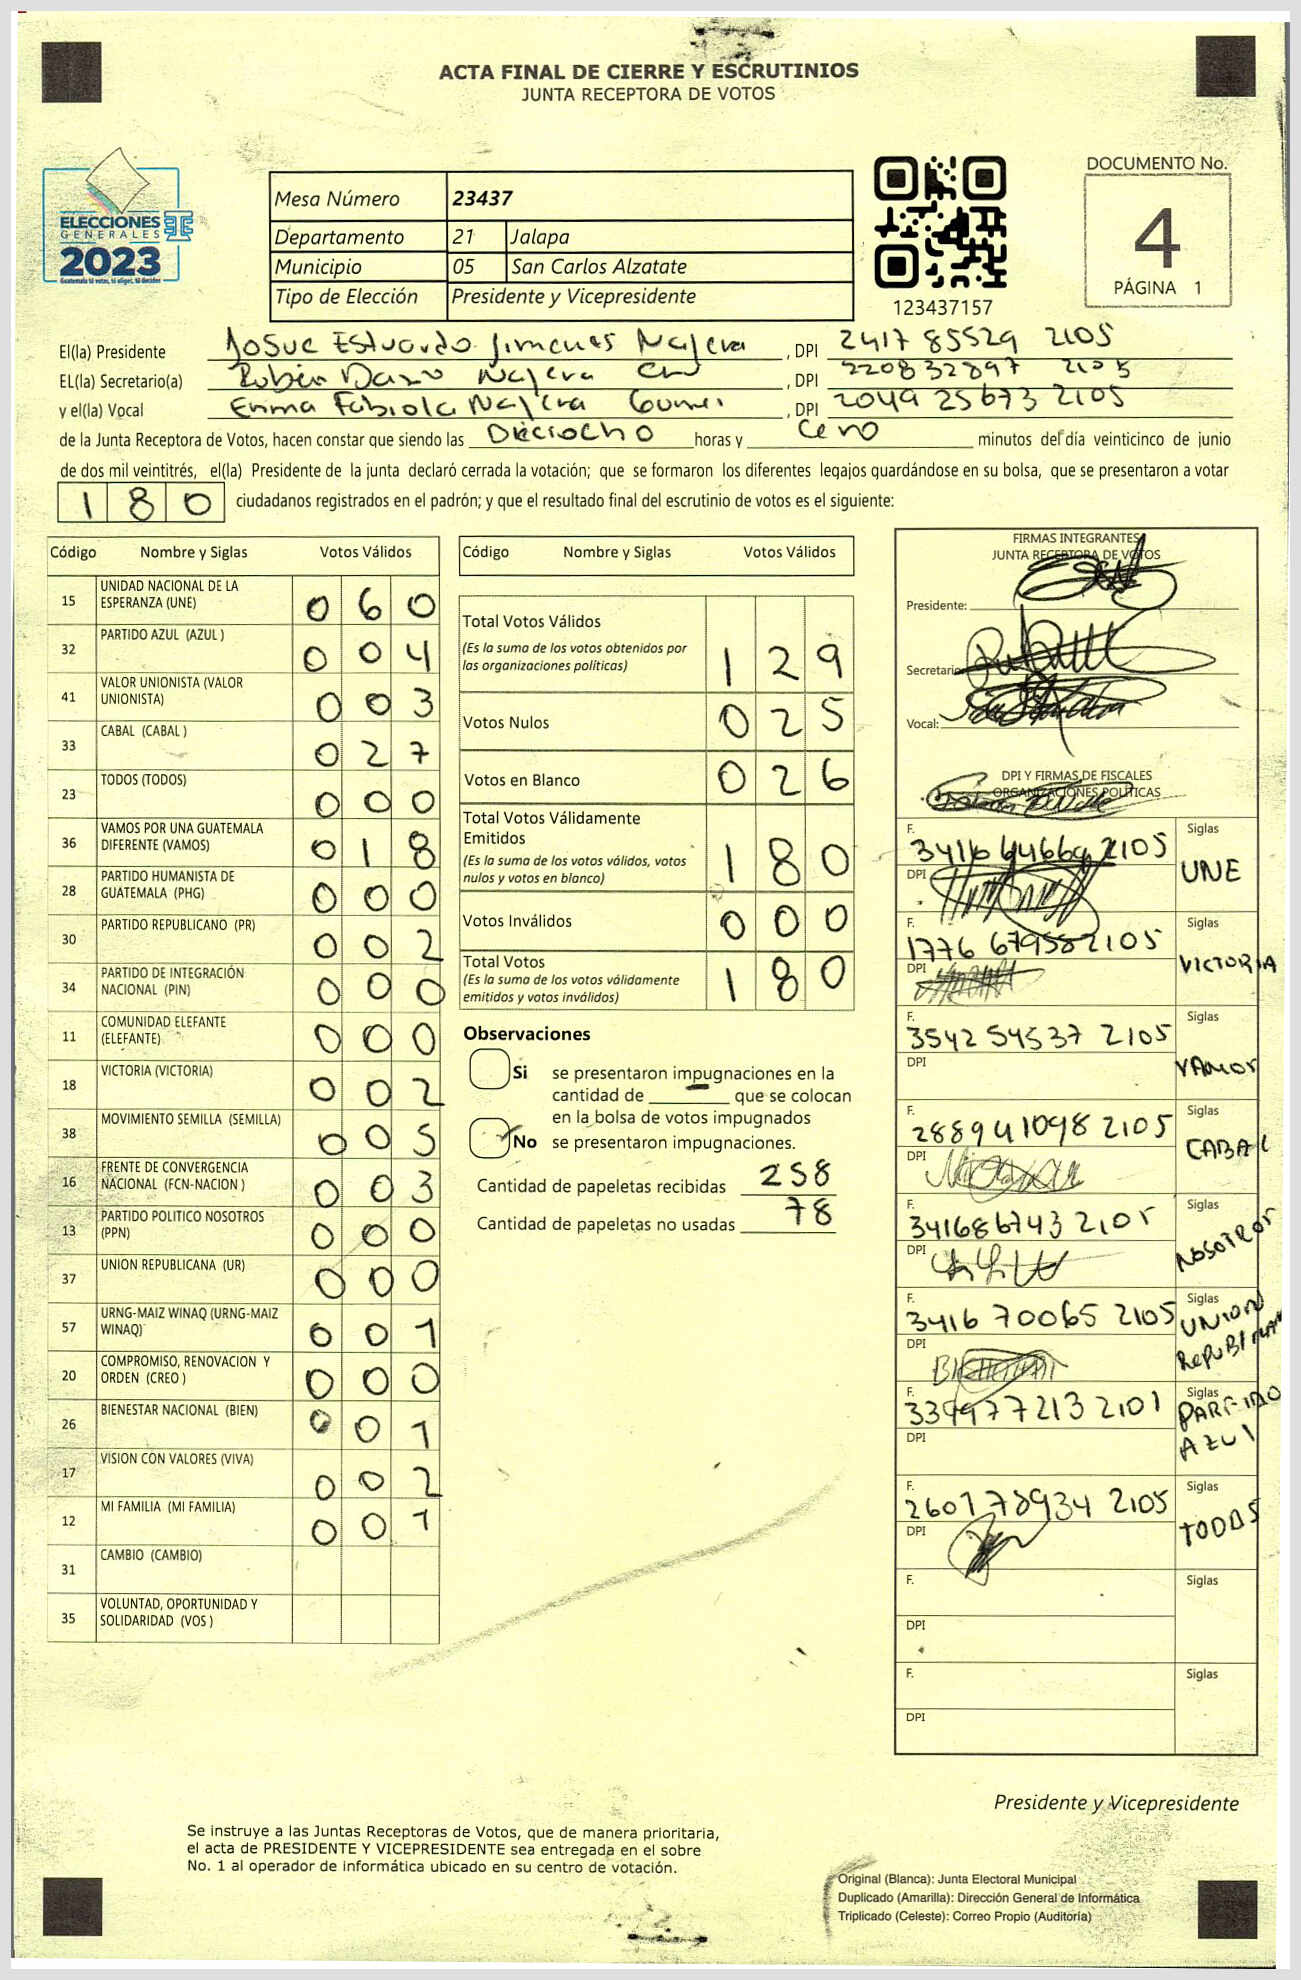 ACTA FINAL DE CIERRE Y ESCRUTINIOS
JUNTA RECEPTORA DE VOTOS
ELECCIONES
GENERALES
2023
Guatemala tú votas, tú eliges, tú decides
Mesa Número 23437
Departamento 21 Jalapa
Municipio 05 San Carlos Alzatate
Tipo de Elección Presidente y Vicepresidente
123437157
DOCUMENTO No.
4
PÁGINA 1
El(la) Presidente Josue Estuardo Jimenes Najera , DPI 2417 85529 2105
EL(la) Secretario(a) Rubén Dario Najera , DPI 220832897 2105
y el(la) Vocal Enma Fabiola Najera , DPI 2049 25673 2105
de la Junta Receptora de Votos, hacen constar que siendo las Dieciocho horas y Cero minutos del día veinticinco de junio
de dos mil veintitrés, el(la) Presidente de la junta declaró cerrada la votación; que se formaron los diferentes legajos guardándose en su bolsa, que se presentaron a votar
180 ciudadanos registrados en el padrón; y que el resultado final del escrutinio de votos es el siguiente:
Código Nombre y Siglas Votos Válidos
15 UNIDAD NACIONAL DE LA ESPERANZA (UNE) 060
32 PARTIDO AZUL (AZUL ) 004
41 VALOR UNIONISTA (VALOR UNIONISTA) 003
33 CABAL (CABAL ) 027
23 TODOS (TODOS) 000
36 VAMOS POR UNA GUATEMALA DIFERENTE (VAMOS) 018
28 PARTIDO HUMANISTA DE GUATEMALA (PHG) 000
30 PARTIDO REPUBLICANO (PR) 002
34 PARTIDO DE INTEGRACIÓN NACIONAL (PIN) 000
11 COMUNIDAD ELEFANTE (ELEFANTE) 000
18 VICTORIA (VICTORIA) 002
38 MOVIMIENTO SEMILLA (SEMILLA) 005
16 FRENTE DE CONVERGENCIA NACIONAL (FCN-NACION ) 003
13 PARTIDO POLITICO NOSOTROS (PPN) 000
37 UNION REPUBLICANA (UR) 000
57 URNG-MAIZ WINAQ (URNG-MAIZ WINAQ) 001
20 COMPROMISO, RENOVACION Y ORDEN (CREO ) 000
26 BIENESTAR NACIONAL (BIEN) 001
17 VISION CON VALORES (VIVA) 002
12 MI FAMILIA (MI FAMILIA) 001
31 CAMBIO (CAMBIO)
35 VOLUNTAD, OPORTUNIDAD Y SOLIDARIDAD (VOS )
Código Nombre y Siglas Votos Válidos
Total Votos Válidos 129
(Es la suma de los votos obtenidos por
las organizaciones políticas)
Votos Nulos 025
Votos en Blanco 026
Total Votos Válidamente
Emitidos 180
(Es la suma de los votos válidos, votos
nulos y votos en blanco)
Votos Inválidos 000
Total Votos 180
(Es la suma de los votos válidamente
emitidos y votos inválidos)
Observaciones
Si se presentaron impugnaciones en la
cantidad de que se colocan
en la bolsa de votos impugnados
No se presentaron impugnaciones.
Cantidad de papeletas recibidas 258
Cantidad de papeletas no usadas 78
FIRMAS INTEGRANTES
JUNTA RECEPTORA DE VOTOS
Presidente:
Secretario
Vocal:
DPI Y FIRMAS DE FISCALES
ORGANIZACIONES POLÍTICAS
F. Siglas
3416 64669 2105 UNE
DPI
F. Siglas
1776 67958 2105 VICTORIA
DPI
F. Siglas
3542 54537 2105 VAMOS
DPI
F. Siglas
2889 41098 2105 CABAL
DPI
F. Siglas
341686743 2105 NOSOTROS
DPI
F. Siglas
3416 70065 2105 UNION
DPI
F. Siglas
339977213 2101 PARTIDO AZUL
DPI
F. Siglas
2601 78934 2105 TODOS
DPI
F. Siglas
DPI
F. Siglas
DPI
Presidente y Vicepresidente
Se instruye a las Juntas Receptoras de Votos, que de manera prioritaria,
el acta de PRESIDENTE Y VICEPRESIDENTE sea entregada en el sobre
No. 1 al operador de informática ubicado en su centro de votación.
Original (Blanca): Junta Electoral Municipal
Duplicado (Amarilla): Dirección General de Informática
Triplicado (Celeste): Correo Propio (Auditoría)